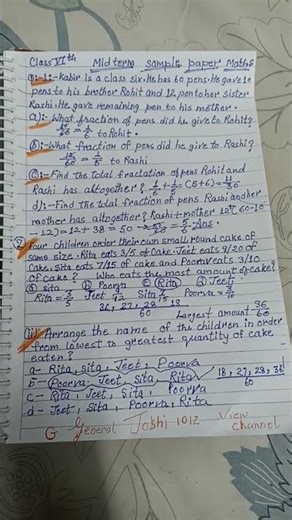 Class VIth Midterm sample paper Maths
Q:-1:- Kabir is a class six. He has 60 pens. He gave 10
pens to his brother Rohit and 12 pen to her sister
Rashi. He gave remaining pen to his mother.
a):- What fraction of pens did he give to Rohit?
10/60 = 1/6 to Rohit.
b):- What fraction of pens did he give to Rashi?
12/60 = 1/5 to Rashi
C:- Find the total fractation of pens Rohit and
Rashi has altogether? 1/6 + 1/5 = (5+6) = 11/30
d):- Find the total fraction of pens Rashi and her
mother has altogether? Rashi + mother 12+(60-10
-12) = 12+38 = 50 = 50/60 = 5/6 Ans.
Four children order their own small round cake of
same size. Rita eats 3/5 of Cake. Jeet eats 9/20 of
Cake, Sita eats 7/15 of cake and Poorva eats 3/10
of Cake? Who eats the most amount of cake?
a) Sita b) Poorva c) Rita d) Jeeti
Rita = 3/5 Jeet Sita 7/15 Poorva = 3/10
36, 27, 28, 18
60
Largest amount 36/60
(ii) Arrange the name of the children in order
from lowest to greatest quantity of cake
eaten?
a- Rita, Sita, Jeet, Poorva
b- Poorva, Jeet, Sita, Rita
18, 27, 28, 36
60
c- Rita, Jeet, Sita, Poorva
d- Jeet, Sita, Poorva, Rita
G General Joshi 1012 View
channel